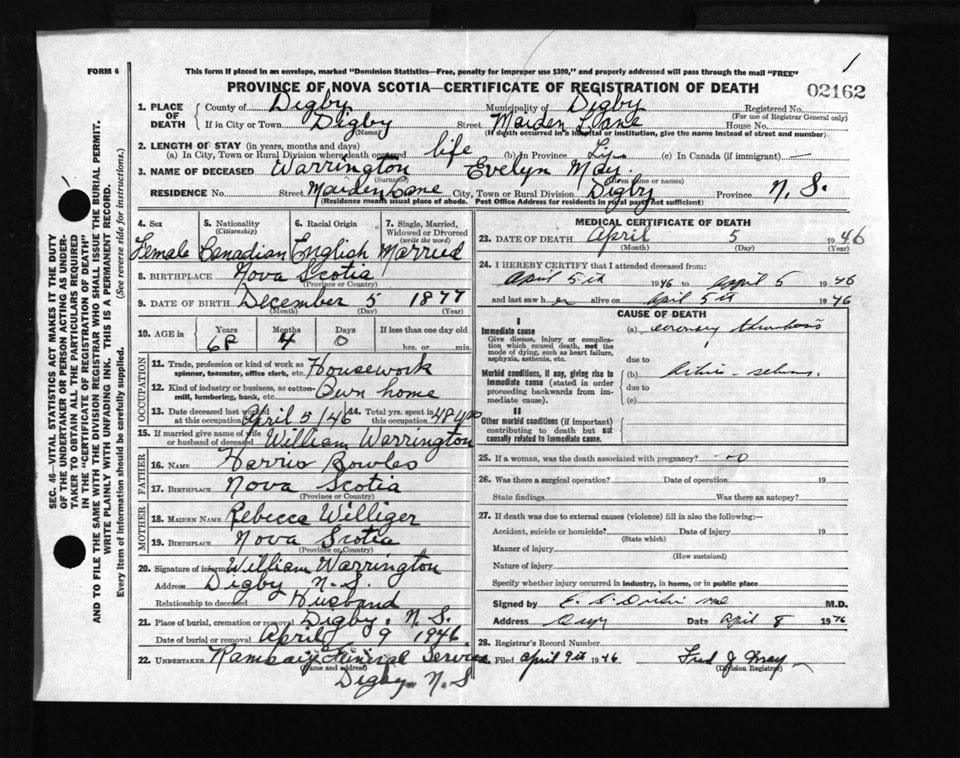 1
FORM 6
This form if placed in an envelope, marked "Dominion Statistics—Free, penalty for improper use $300," and properly addressed will pass through the mail "FREE"
PROVINCE OF NOVA SCOTIA—CERTIFICATE OF REGISTRATION OF DEATH
02162
1. PLACE OF DEATH
County of Digby Municipality of Digby Registered No.
(For use of Registrar General only)
If in City or Town Digby Street Maiden Lane House No.
(Name) (If death occurred in a hospital or institution, give the name instead of street and number)
2. LENGTH OF STAY (in years, months and days)
(a) In City, Town or Rural Division where death occurred life (b) In Province (c) In Canada (if immigrant) —
3. NAME OF DECEASED Warrington Evelyn May
(Surname) (Given name or names)
RESIDENCE No. Street Maiden Lane City, Town or Rural Division Digby Province N. S.
(Residence means usual place of abode. Post Office Address for residents in rural parts not sufficient)
4. Sex Female
5. Nationality (Citizenship) Canadian
6. Racial Origin English
7. Single, Married, Widowed or Divorced (write the word) Married
8. BIRTHPLACE Nova Scotia
(Province or Country)
9. DATE OF BIRTH December 5 1877
(Month) (Day) (Year)
10. AGE in Years Months Days If less than one day old
68 4 0 hrs. or min.
OCCUPATION
11. Trade, profession or kind of work as spinner, teamster, office clerk, etc. Housework
12. Kind of industry or business, as cotton mill, lumbering, bank, etc. Own home
13. Date deceased last worked at this occupation April 5/46 14. Total yrs. spent in this occupation 48 yrs
15. If married give name of wife or husband of deceased William Warrington
FATHER
16. NAME Harris Bowles
17. BIRTHPLACE Nova Scotia
(Province or Country)
MOTHER
18. MAIDEN NAME Rebecca Williger
19. BIRTHPLACE Nova Scotia
(Province or Country)
20. Signature of informant William Warrington
Address Digby N. S.
Relationship to deceased Husband
21. Place of burial, cremation or removal Digby, N. S.
Date of burial or removal April 9 1946
22. UNDERTAKER Funeral Service
(Name and address)
Digby N. S
MEDICAL CERTIFICATE OF DEATH
23. DATE OF DEATH April 5 1946
(Month) (Day) (Year)
24. I HEREBY CERTIFY that I attended deceased from:
April 5th 1946 to April 5 1946
and last saw her alive on April 5th 1946
CAUSE OF DEATH
I
Immediate cause (a) coronary thrombosis
Give disease, injury or complication which caused death, not the mode of dying, such as heart failure, asphyxia, asthenia, etc.
due to
Morbid conditions, if any, giving rise to immediate cause (stated in order proceeding backwards from immediate cause). (b)
due to
(c)
II
Other morbid conditions (if important) contributing to death but not causally related to immediate cause.
25. If a woman, was the death associated with pregnancy? no
26. Was there a surgical operation? Date of operation 19
State findings Was there an autopsy?
27. If death was due to external causes (violence) fill in also the following:—
Accident, suicide or homicide? Date of injury 19
(State which)
Manner of injury
(How sustained)
Nature of injury
Specify whether injury occurred in industry, in home, or in public place
Signed by M.D.
Address Date April 8 1946
28. Registrar's Record Number
Filed April 9th 1946 Fred J.
(Division Registrar)
SEC. 46—VITAL STATISTICS ACT MAKES IT THE DUTY
OF THE UNDERTAKER OR PERSON ACTING AS UNDER-
TAKER TO OBTAIN ALL THE PARTICULARS REQUIRED
IN THE "CERTIFICATE OF REGISTRATION OF DEATH"
AND TO FILE THE SAME WITH THE DIVISION REGISTRAR WHO SHALL ISSUE THE BURIAL PERMIT.
WRITE PLAINLY WITH UNFADING INK. THIS IS A PERMANENT RECORD.
Every item of information should be carefully supplied. (See reverse side for instructions.)